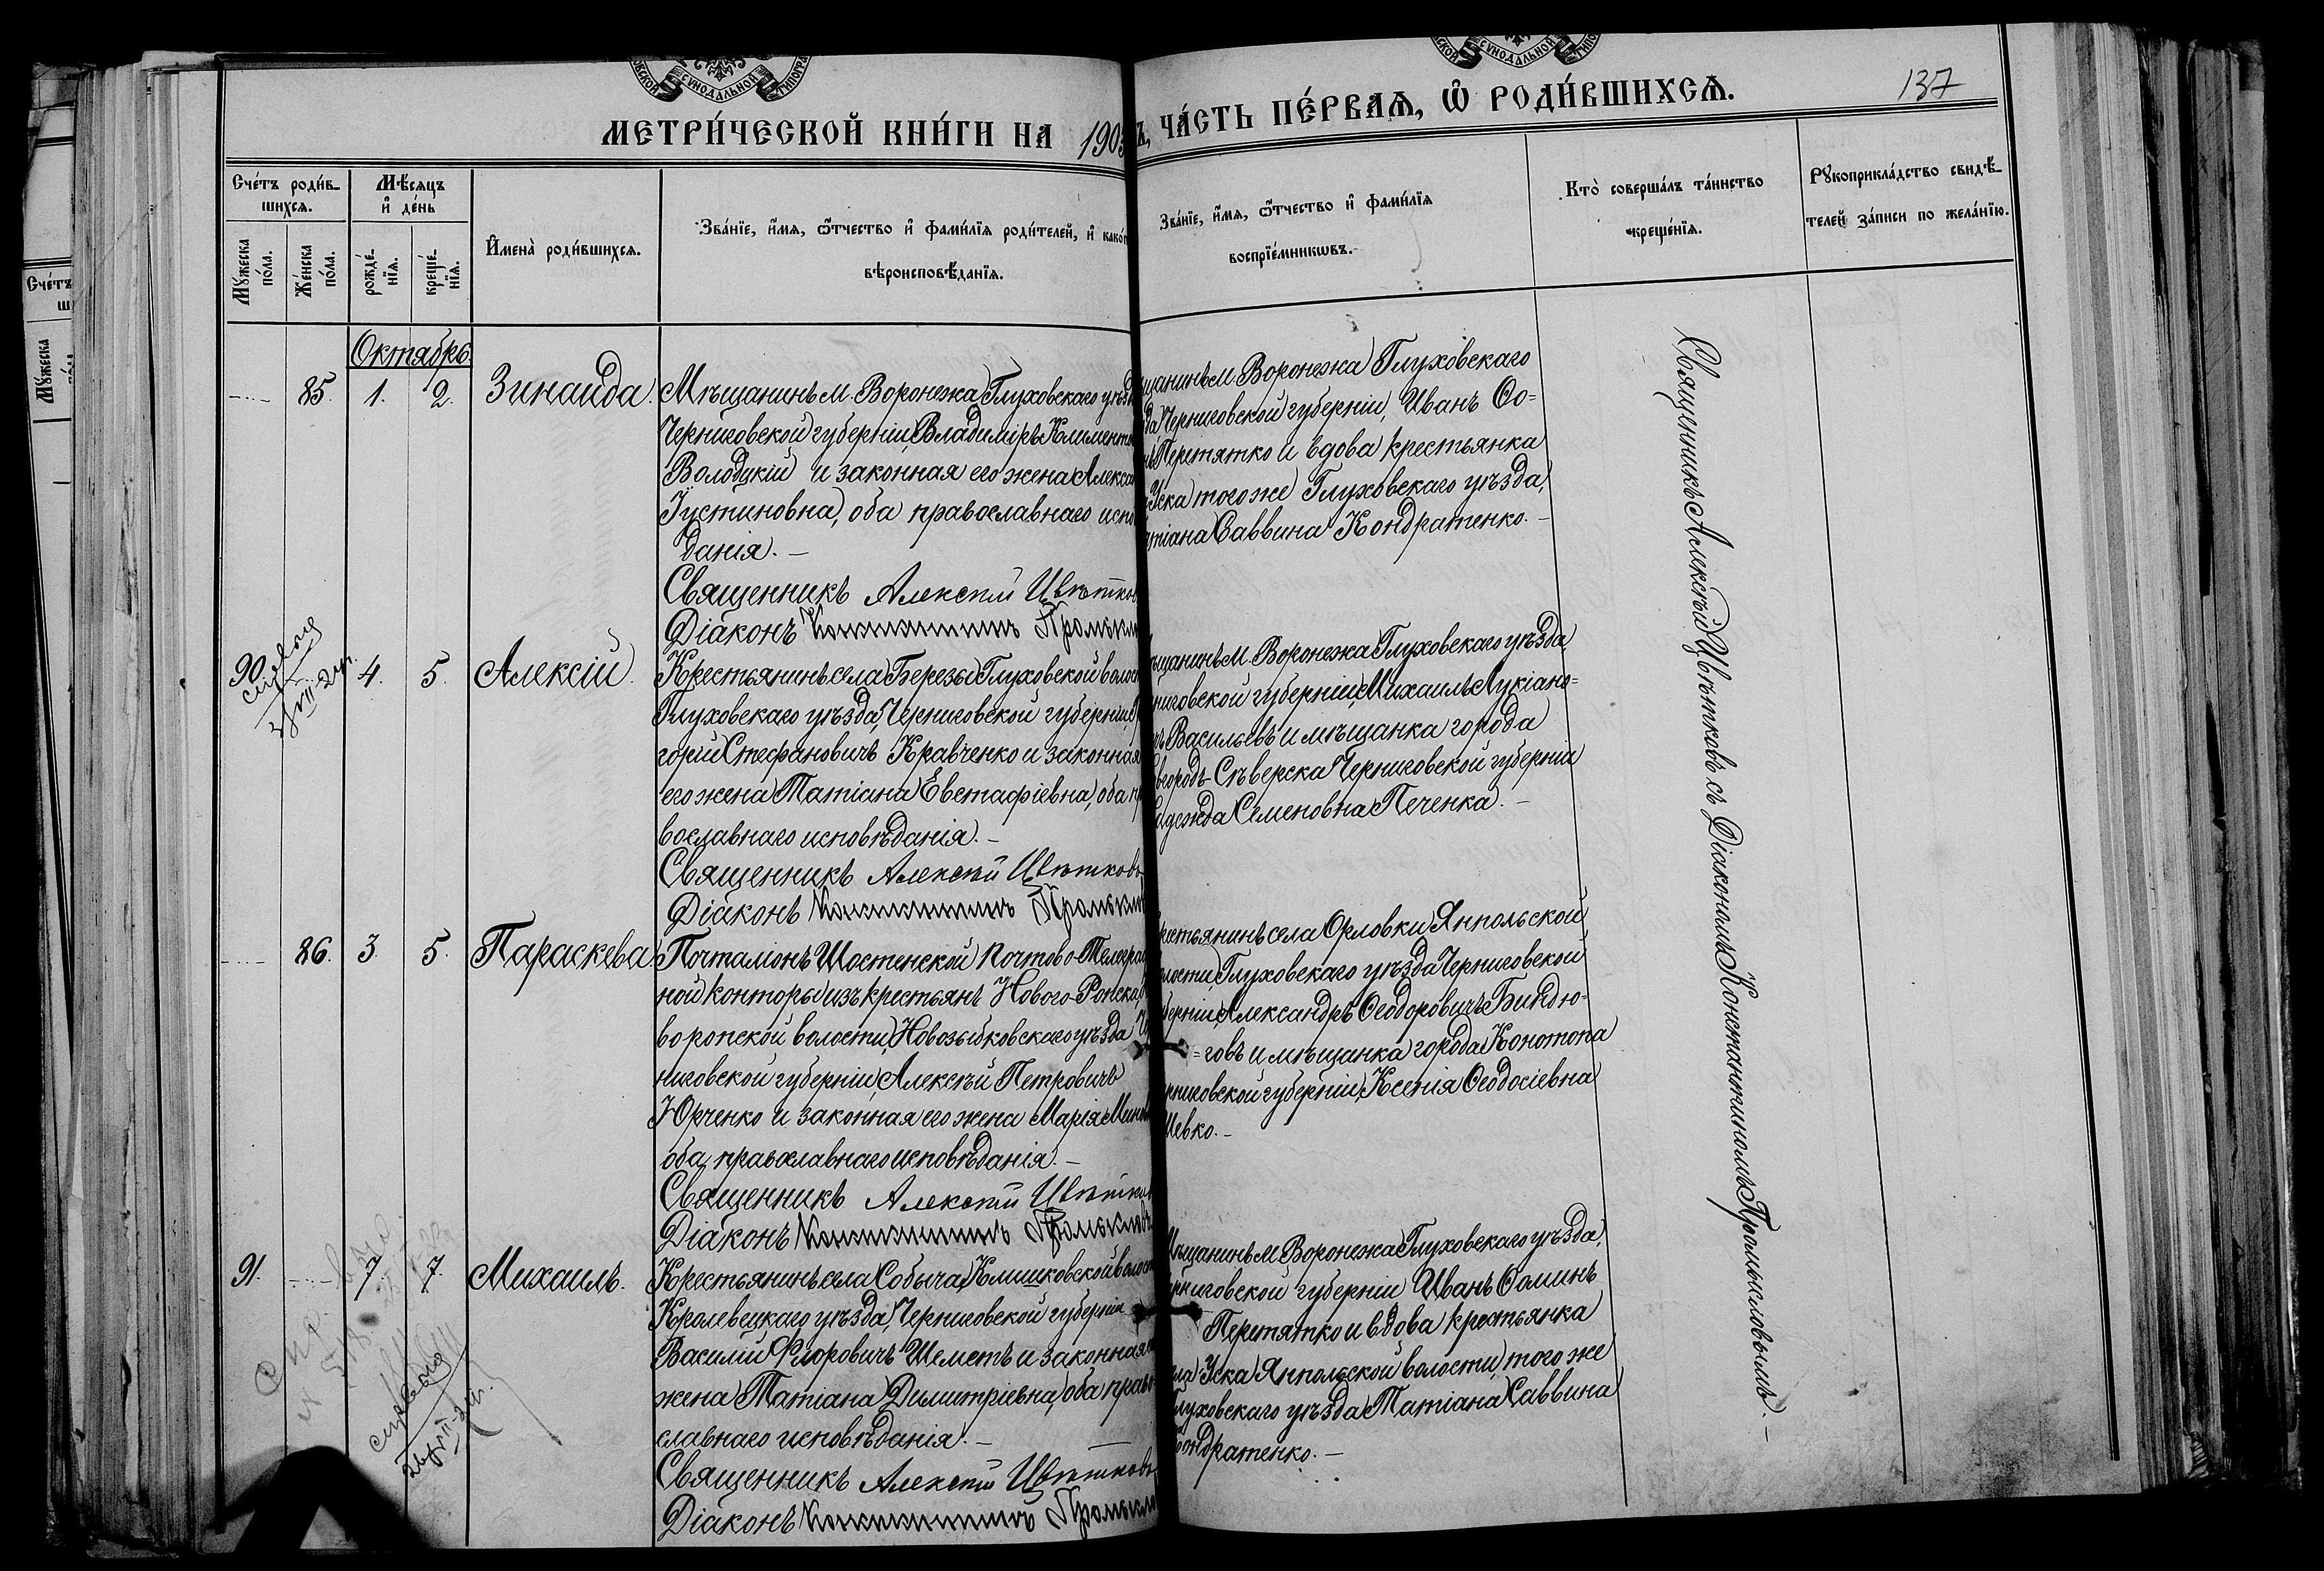 СУНОДАЛЬНОЙ
СУНОДАЛЬНОЙ
137
МЕТРИ́ЧЕСКОЙ КНИ́ГИ НА 1903
ЧА́СТЬ ПЕ́РВАѦ, Ѿ РОДИ́ВШИХСѦ.
Сче́тъ роди́в-
шихсѧ.
Мѣ́сѧцъ
и҆ де́нь
Мꙋ́жеска по́ла.
Же́нска по́ла.
рожде́-нїѧ.
креще́-нїѧ.
И҆мена̀ роди́вшихсѧ.
Зва́нїе, и҆́мѧ, ѻ҆́тчество и҆ фамѝлїѧ роди́телей, и҆ како́
вѣроисповѣ́данїѧ.
Зва́нїе, и҆́мѧ, ѻ҆́тчество и҆ фами́лїѧ
воспрїе́мникѡвъ.
Кто̀ соверша́лъ та́инство
креще́нїѧ.
Рꙋкоприкла́дство свидѣ́-
телей за́писи по жела́нїю.
Октябрь.
85. 1. 2. Зинаида.
Мѣщанинъ м. Воронежа Глуховскаго уѣзд
Черниговской губерніи, Владиміръ Климент
Володцкій и законная его жена Алекса
Іустиновна, оба православнаго испо
данія. —
Священникъ Алексѣй Цвѣтков
Діаконъ Константинъ Промыкл
щанинъ м. Воронежа Глуховскаго
да Черниговской губерніи, Иванъ Ѳо=
Перетятко и вдова крестьянка
Уска того же Глуховскаго уѣзда,
тіана Саввина Кондратенко. —
90. 4. 5. Алексій.
Крестьянинъ села Березы Глуховской волос
Глуховскаго уѣзда, Черниговской губерніи, Г
горій Стефановичъ Кравченко и законная
его жена Татіана Евстафіевна, оба пр
вославнаго исповѣданія. —
Священникъ Алексѣй Цвѣтковъ
Діаконъ Константинъ Промыкл
щанинъ м. Воронежа Глуховскаго уѣзда
ниговской губерніи, Михаилъ Лукіано=
Васильевъ и мѣщанка города
вгородъ-Сѣверска Черниговской губерніи
адежда Семеновна Печенка. —
86. 3. 5. Параскева
Почталіонъ Шостенской Почтово-Телегра
ной конторы изъ крестьянъ Нового-Ропска,
воропской волости, Новозыбковскаго уѣзда Че
ниговской губерніи, Алексѣй Петровичъ
Юрченко и законная его жена Марія Мин
оба православнаго исповѣданія. —
Священникъ Алексѣй Цвѣтков
Діаконъ Константинъ Промыклов
рестьянинъ села Орловки Янпольской
лости, Глуховскаго уѣзда Черниговской
берніи, Александръ Ѳеодоровичъ Биндю=
=говъ и мѣщанка города Конотопа
рниговской губерніи, Ксенія Ѳеодосіевна
Шевко. —
91. 7. 7. Михаилъ.
Крестьянинъ села Собыча, Клишковской волос
Кролевецкаго уѣзда, Черниговской губерніи
Василій Флоровичъ Шеметъ и законная
жена Татіана Димитріевна, оба право
славнаго исповѣданія. —
Священникъ Алексѣй Цвѣтковъ
Діаконъ Константинъ Промыкл
Мѣщанинъ м. Воронежа Глуховскаго уѣзда,
рниговской губерніи Иванъ Ѳоминъ
Перетятко и вдова крестьянка
Уска Янпольской волости, того же
луховскаго уѣзда Татіана Саввина
ондратенко. —
Священникъ Алексѣй Цвѣтковъ съ Діакономъ Константиномъ Промыкловымъ. —